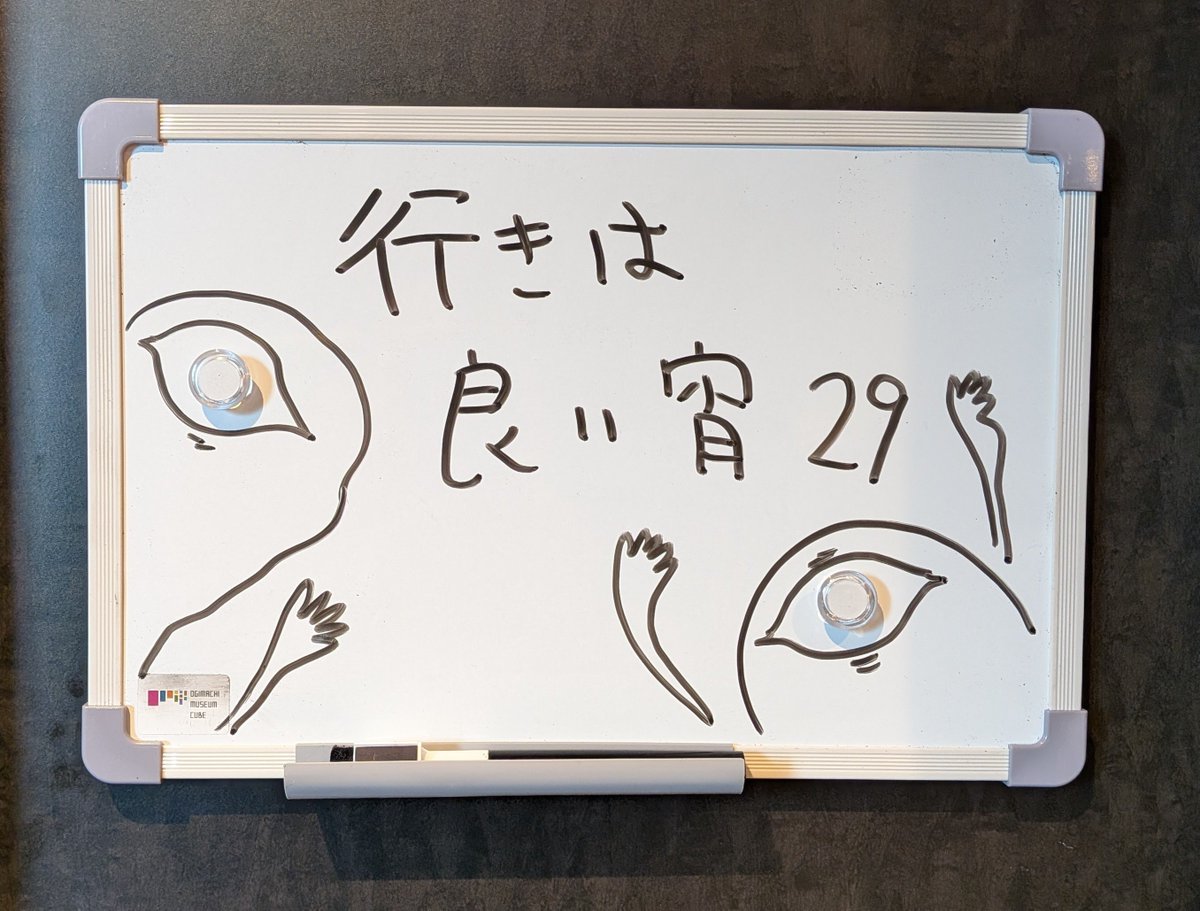 行きは
良い宵29
OGIMACHI
MUSEUM
CUBE